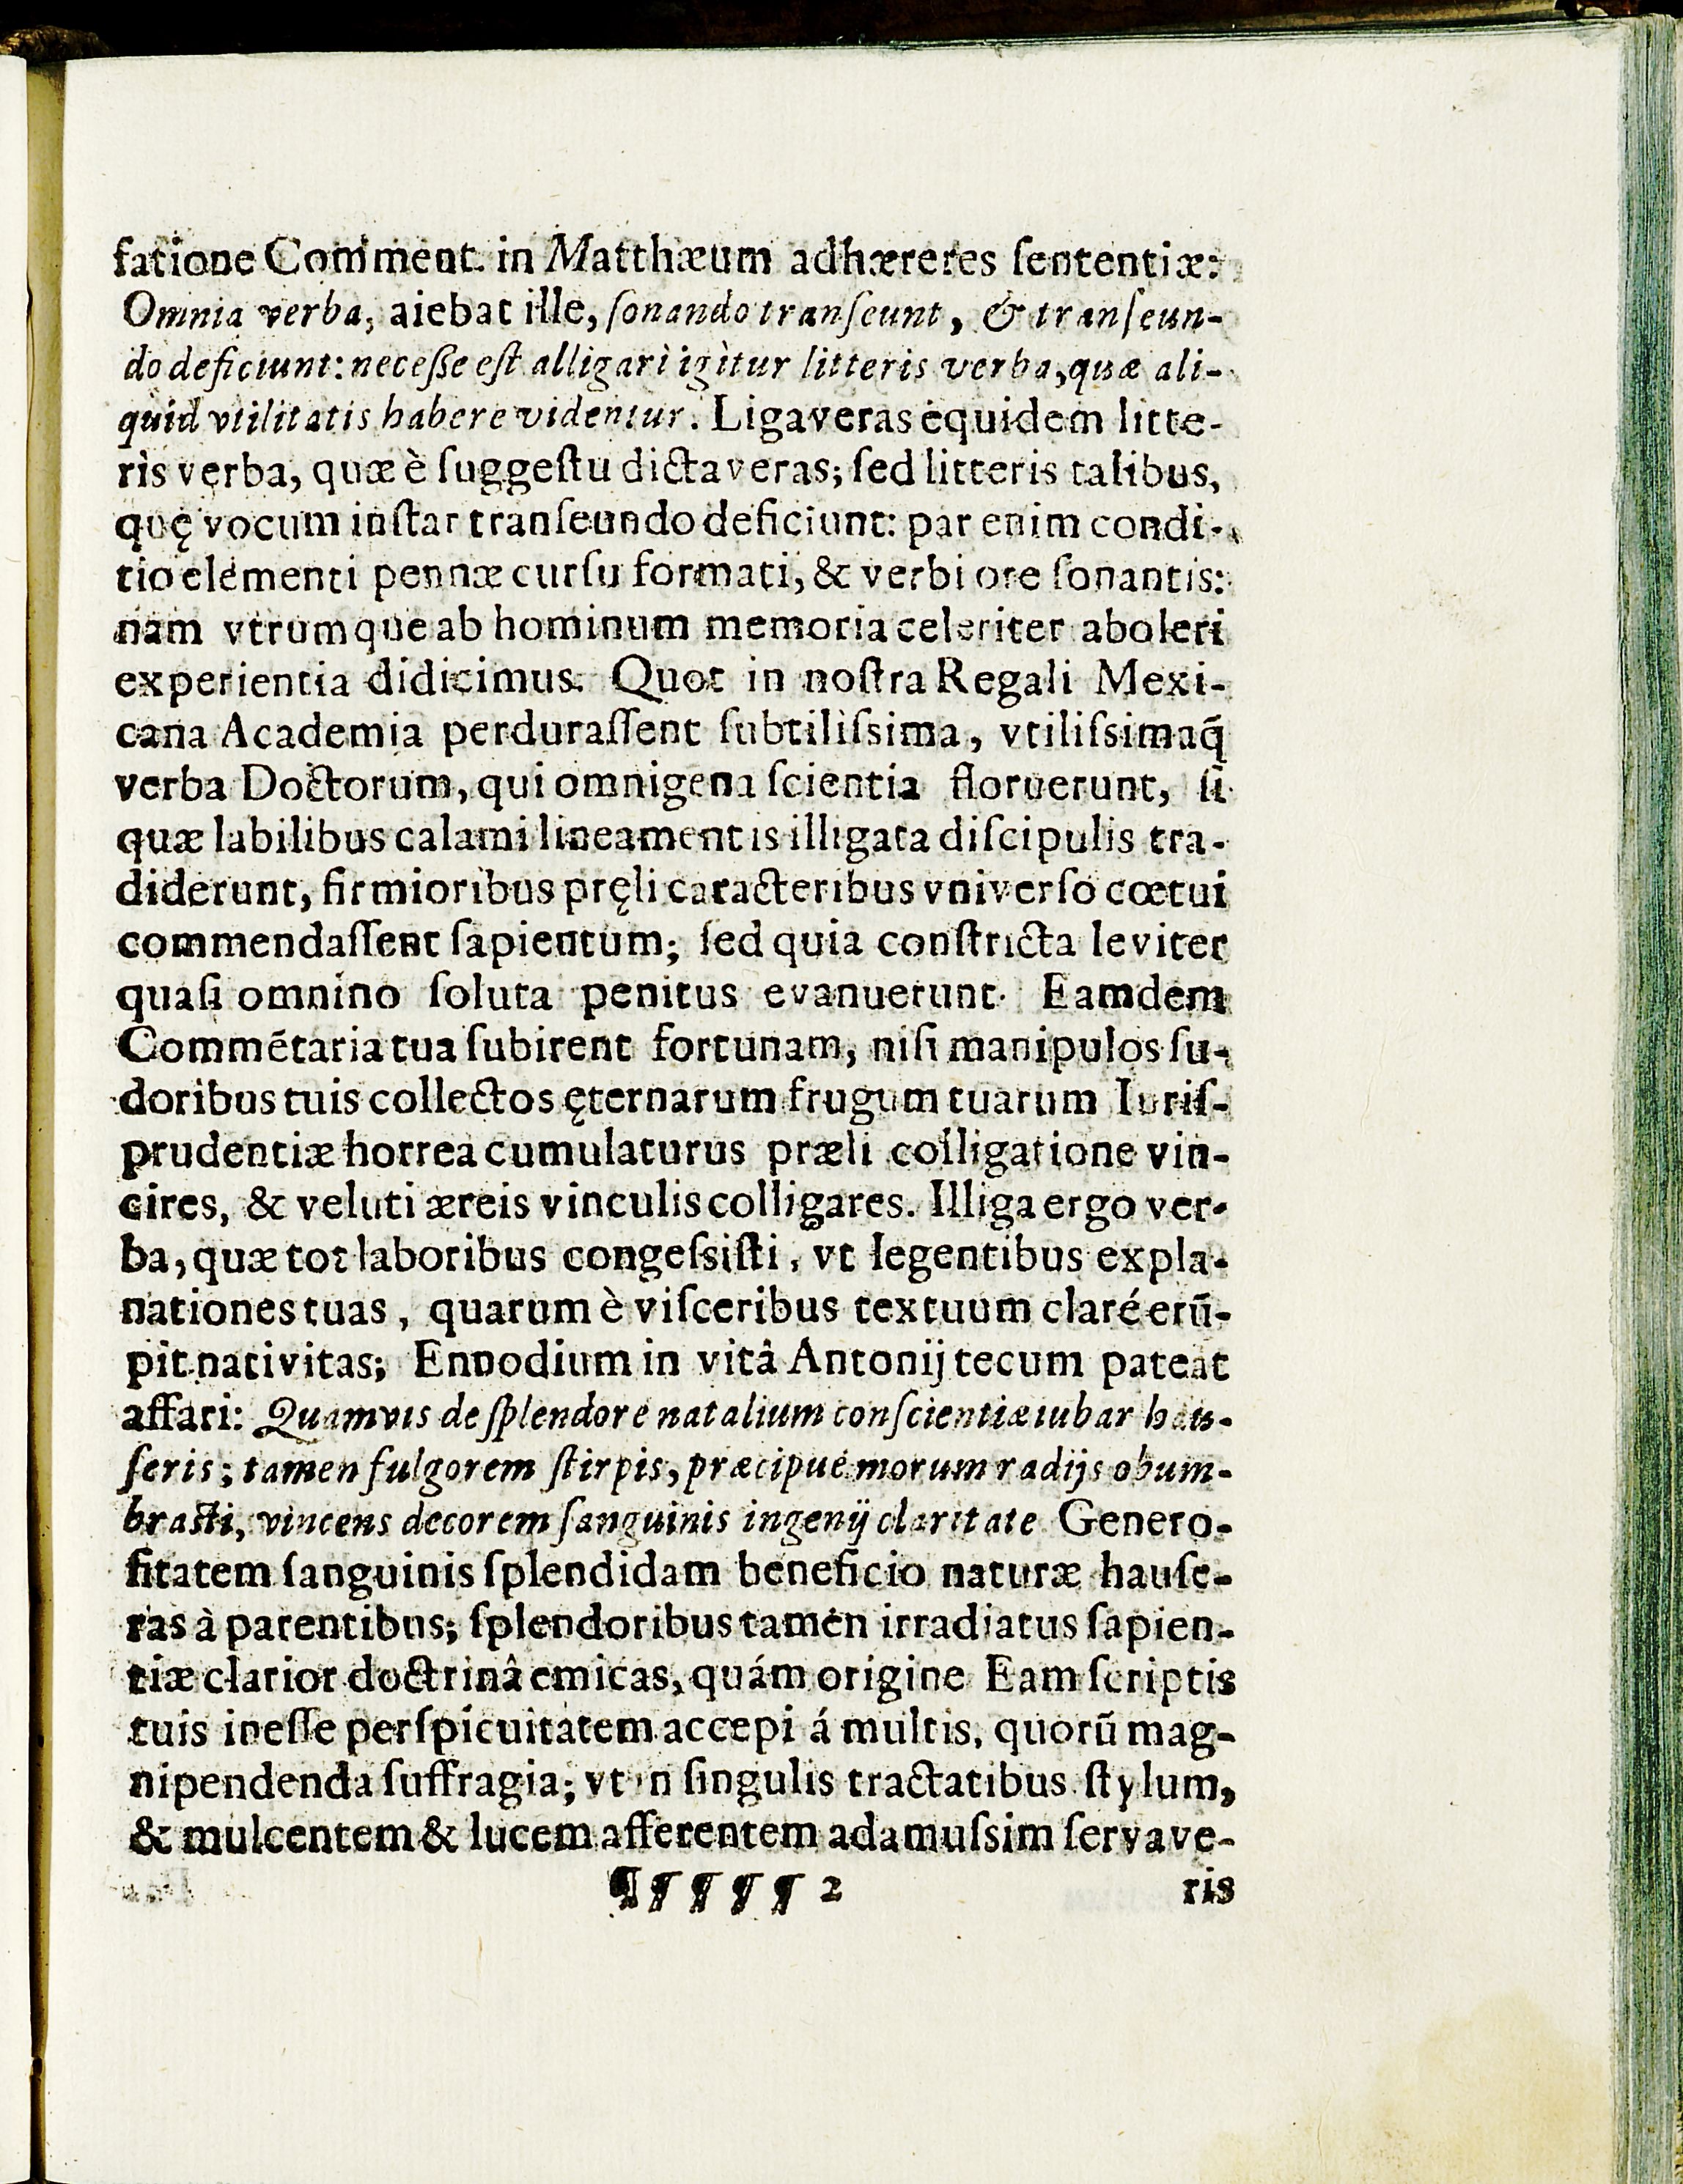 fatione Comment. in Matthæum adhæreres ſententiæ:
Omnia verba, aiebat ille, ſonando tranſeunt, & tranſeun-
do deficiunt: neceſſe eſt alligari igitur litteris verba, quæ ali-
quid vtilitatis habere videntur. Ligaveras equidem litte-
ris verba, quæ è ſuggeſtu dictaveras; ſed litteris talibus,
quę vocum inſtar tranſeundo deficiunt: par enim condi-
tio elementi pennæ curſu formati, & verbi ore ſonantis:
nam vtrumque ab hominum memoria celeriter aboleri
experientia didicimus. Quot in noſtra Regali Mexi-
cana Academia perduraſſent ſubtiliſsima, vtiliſsimaq̃
verba Doctorum, qui omnigena ſcientia floruerunt, ſi
quæ labilibus calami lineamentis illigata diſcipulis tra-
diderunt, firmioribus pręli caracteribus vniverſo cœtui
commendaſſent ſapientum; ſed quia conſtricta leviter
quaſi omnino ſoluta penitus evanuerunt. Eamdem
Commẽtaria tua ſubirent fortunam, niſi manipulos ſu-
doribus tuis collectos ęternarum frugum tuarum Iuriſ-
prudentiæ horrea cumulaturus præli colligatione vin-
cires, & veluti æreis vinculis colligares. Illiga ergo ver-
ba, quæ tot laboribus congeſsiſti, vt legentibus expla-
nationes tuas, quarum è viſceribus textuum claré erũ-
pit nativitas; Ennodium in vitâ Antonij tecum pateat
affari: Quamvis de ſplendore natalium conſcientiæ iubar hau-
ſeris; tamen fulgorem ſtirpis, præcipué morum radijs obum-
braſti, vincens decorem ſanguinis ingenij claritate Genero-
ſitatem ſanguinis ſplendidam beneficio naturæ hauſe-
ras à parentibus; ſplendoribus tamen irradiatus ſapien-
tiæ clarior doctrinâ emicas, quám origine Eam ſcriptis
tuis ineſſe perſpicuitatem accepi á multis, quorũ mag-
nipendenda ſuffragia; vt in ſingulis tractatibus ſtylum,
& mulcentem & lucem afferentem adamuſsim ſervave-
¶¶¶¶¶ 2 ris